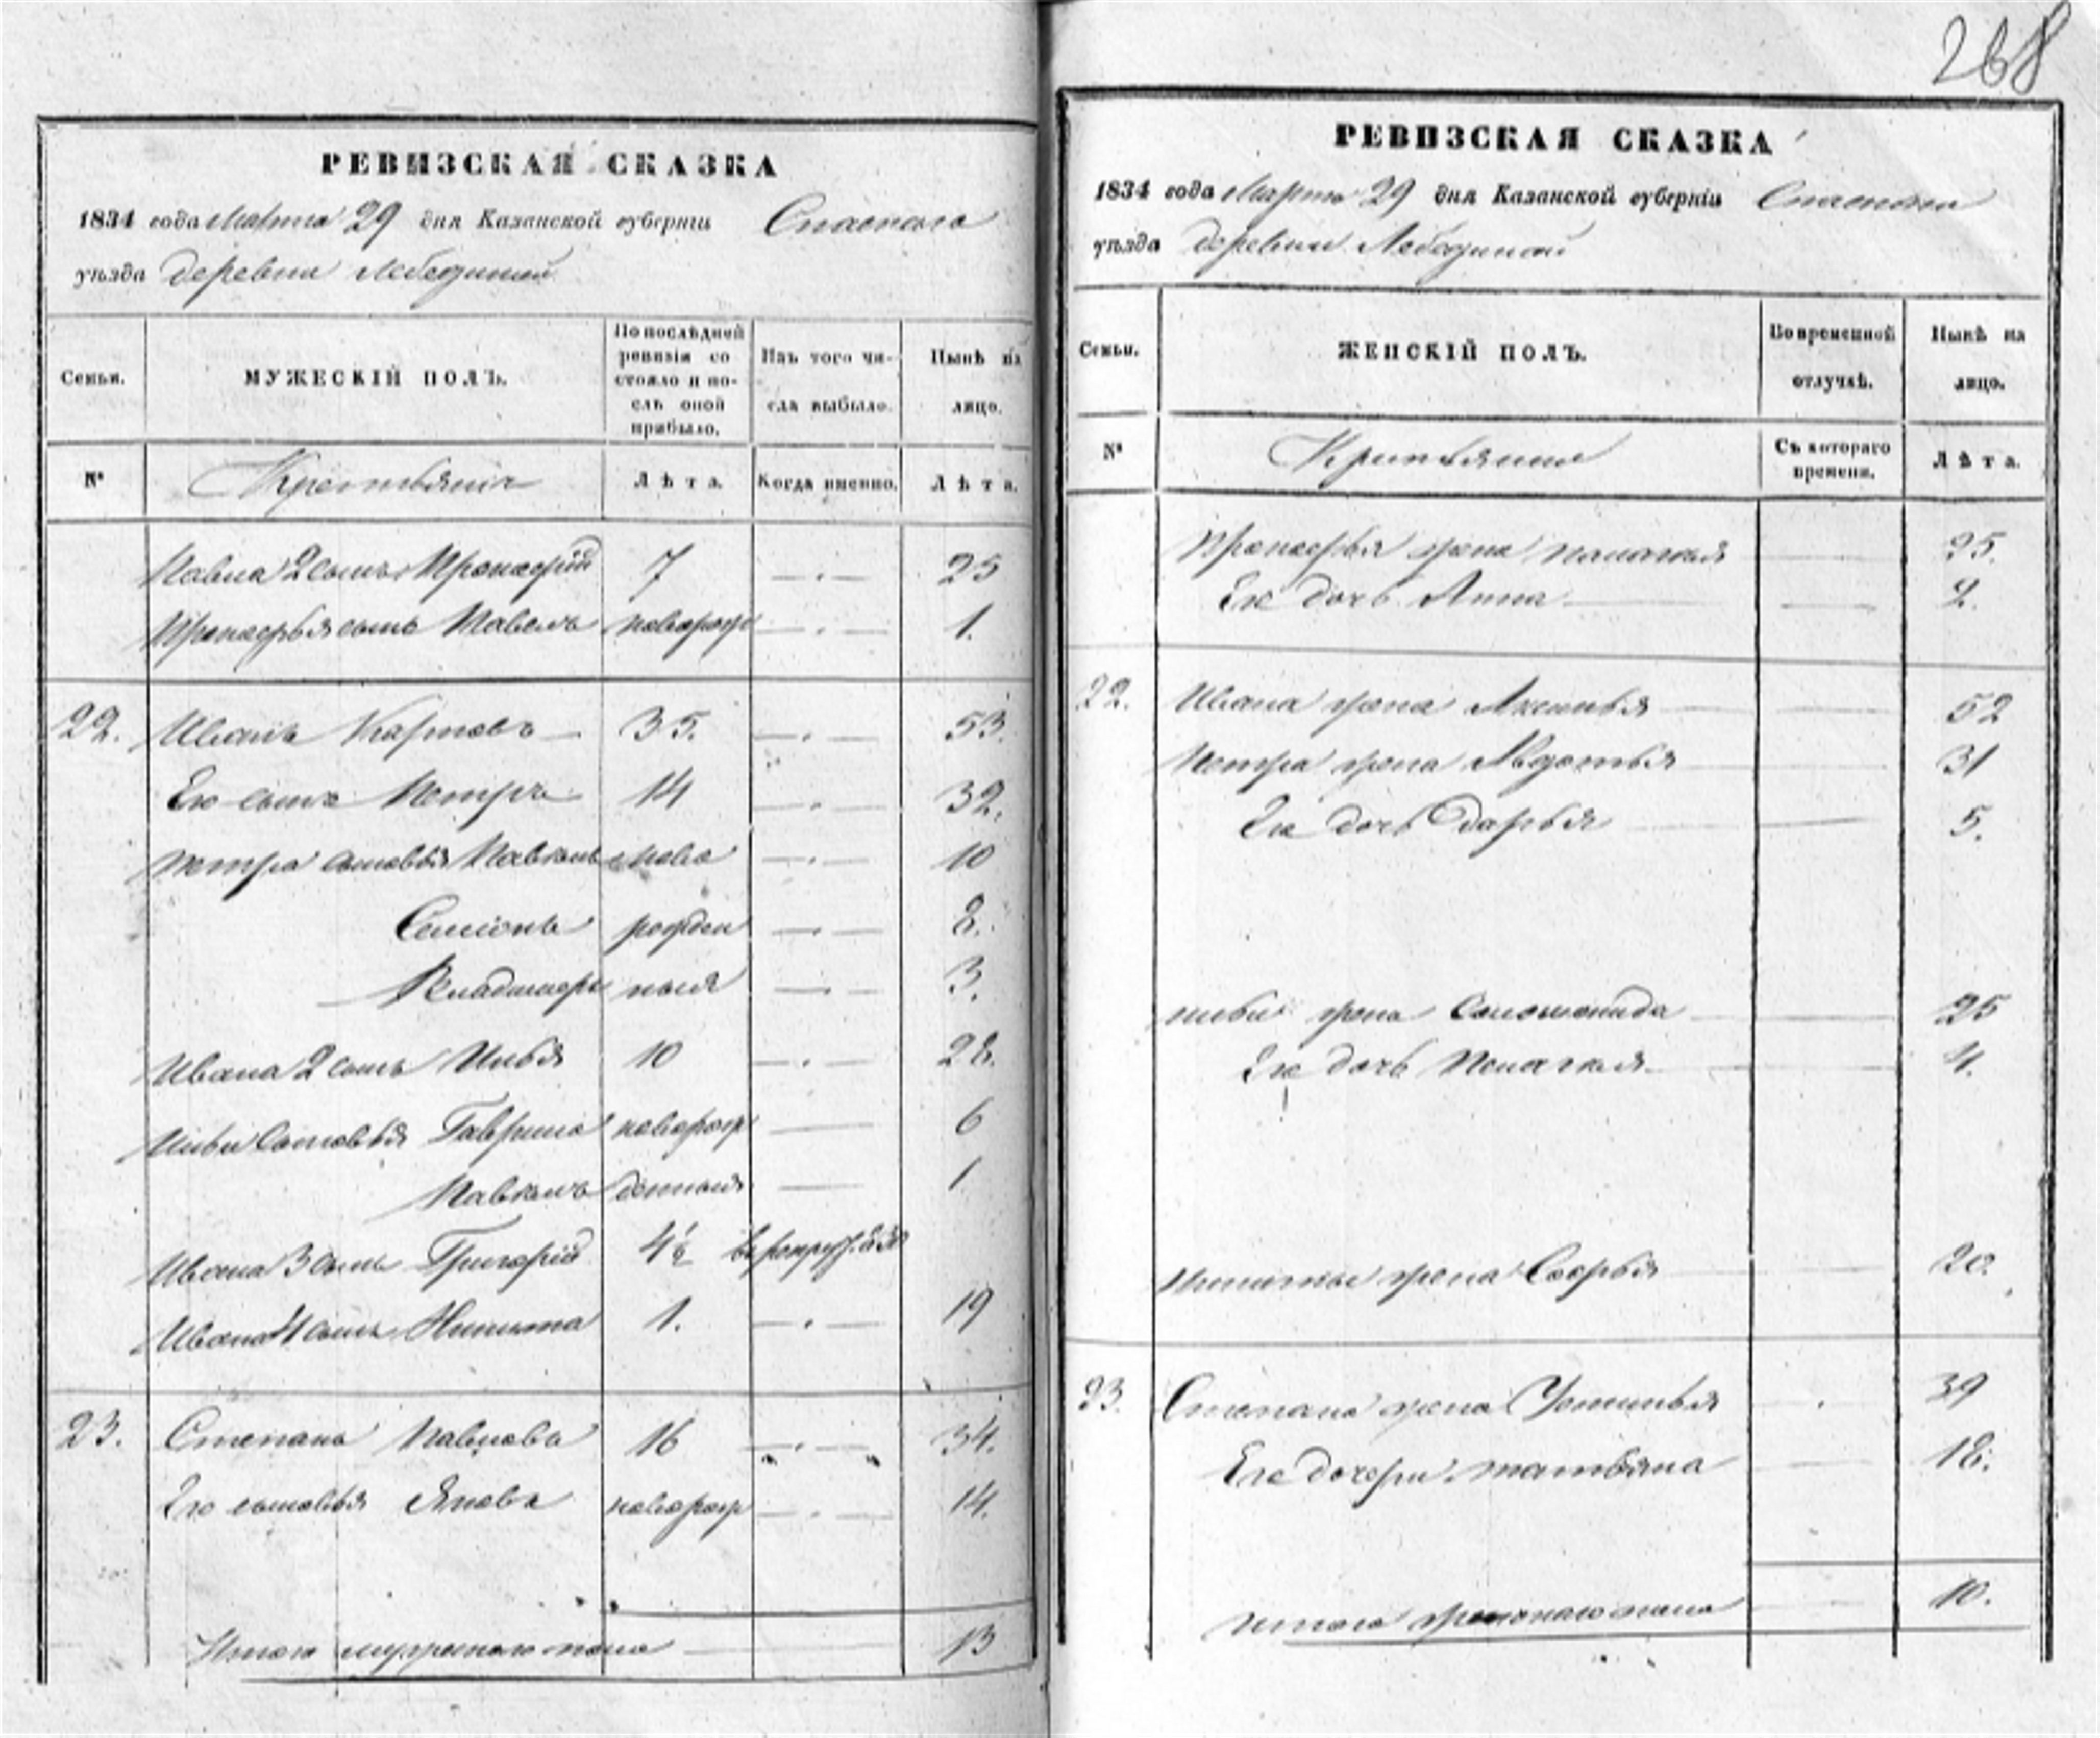 268
РЕВИЗСКАЯ СКАЗКА
1834 года Марта 29 дня Казанской губерніи Спаскаго
уѣзда деревни Лебединой
Семьи.
МУЖЕСКІЙ ПОЛЪ.
По послѣдней ревизіи состояло и послѣ оной прибыло.
Изъ того числа выбыло.
Нынѣ на лицо.
№
Крестьяне
Лѣта.
Когда именно.
Лѣта.
Павла 2 сынъ Прокофій 7 25
Прокофья сынъ Павелъ новорож 1.
22. Иванъ Карповъ 35. 53.
Его сынъ Петръ 14 32.
Петра сыновья Павелъ ново 10
Семіонъ рожден 8.
Владимеръ ныя 3.
Ивана 2 сынъ Илья 10 28.
Ильи сыновья Гаврило новорож 6
Павелъ денныя 1
Ивана 3 сынъ Григорій 4½
Ивана 4 сынъ Никита 1. 19
23. Степанъ Павловъ 16 34.
Его сыновья Яковъ новорож 14.
Итого мужеска пола 13
РЕВИЗСКАЯ СКАЗКА
1834 года Марта 29 дня Казанской губерніи Спаскаго
уѣзда деревни Лебединой
Семьи.
ЖЕНСКІЙ ПОЛЪ.
Во временной отлучкѣ.
Нынѣ на лицо.
№
Крестьяне
Съ котораго времени.
Лѣта.
Прокофья жена Палагея 25.
Ея дочь Анна 2.
22. Ивана жена Аксинья 52
Петра жена Авдотья 31
Ея дочь Дарья 5.
Ильи жена Соломонида 25
Ея дочь Пелагея 4.
Никиты жена Софья 20.
23. Степана жена Устинья 39
Его дочери Татьяна 18.
Итого женскаго пола 10.